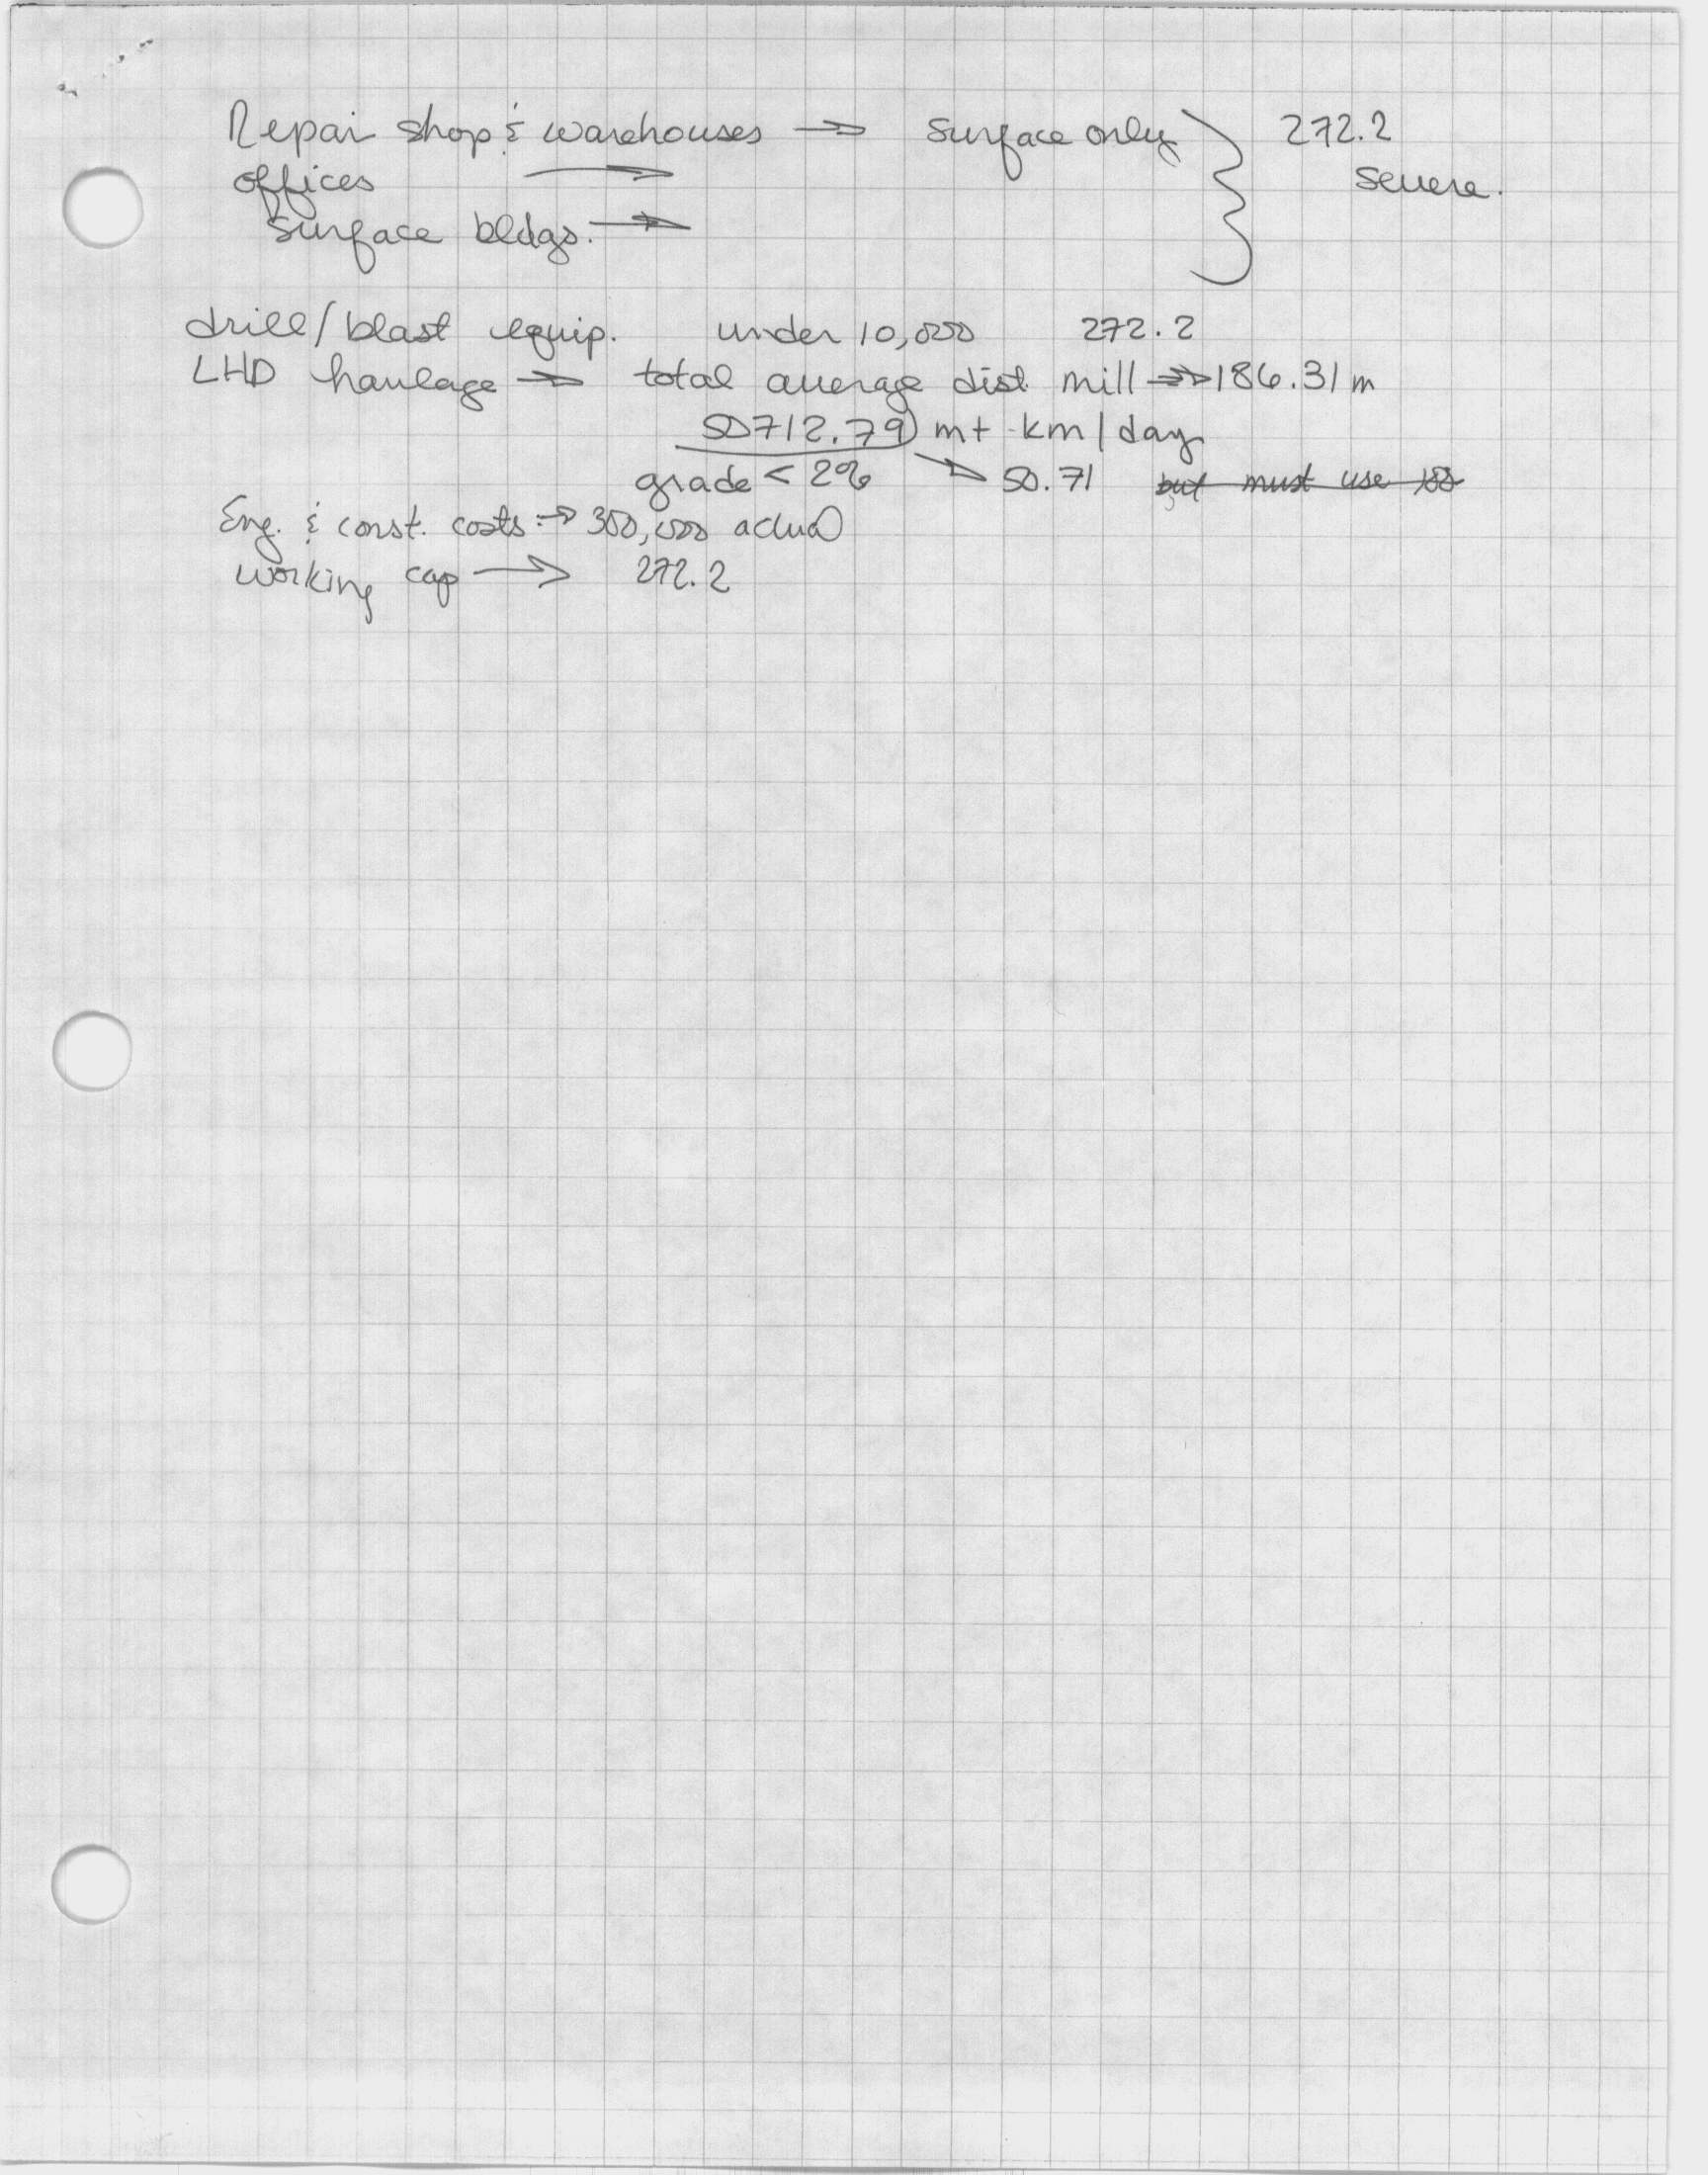 Repair shop & warehouses → surface only } 272.2
offices → severe.
surface bldgs. →
drill/blast equip. under 10,000 272.2
LHD haulage → total average dist. mill → 186.31 m
50712.79 mt-km/day
grade < 2% → 50.71 but must use 100
Eng. & const. costs → 300,000 actual
working cap → 272.2